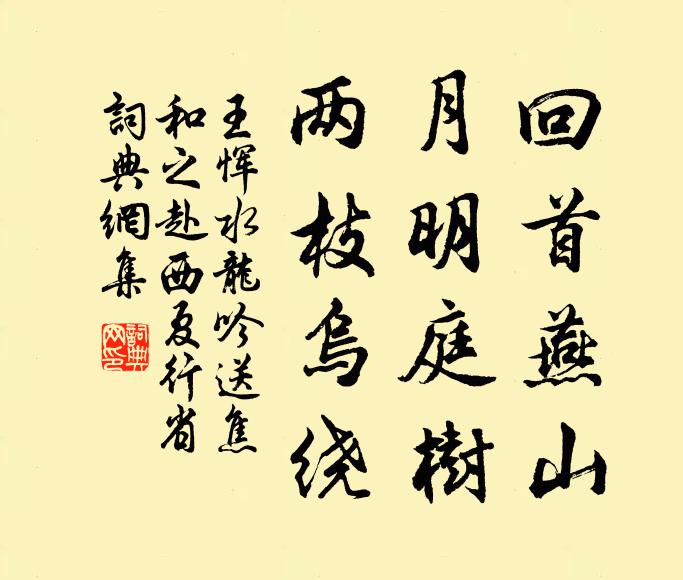 回首燕山
月明庭樹
两枝烏绕
王恽水龍吟送焦
和之赴西夏行省
詞典網集
詞典網印